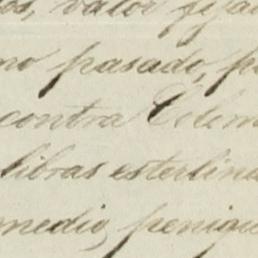 os, valor fija
no pasado, p
contra Clem
libras esterlin
medio, peniqu